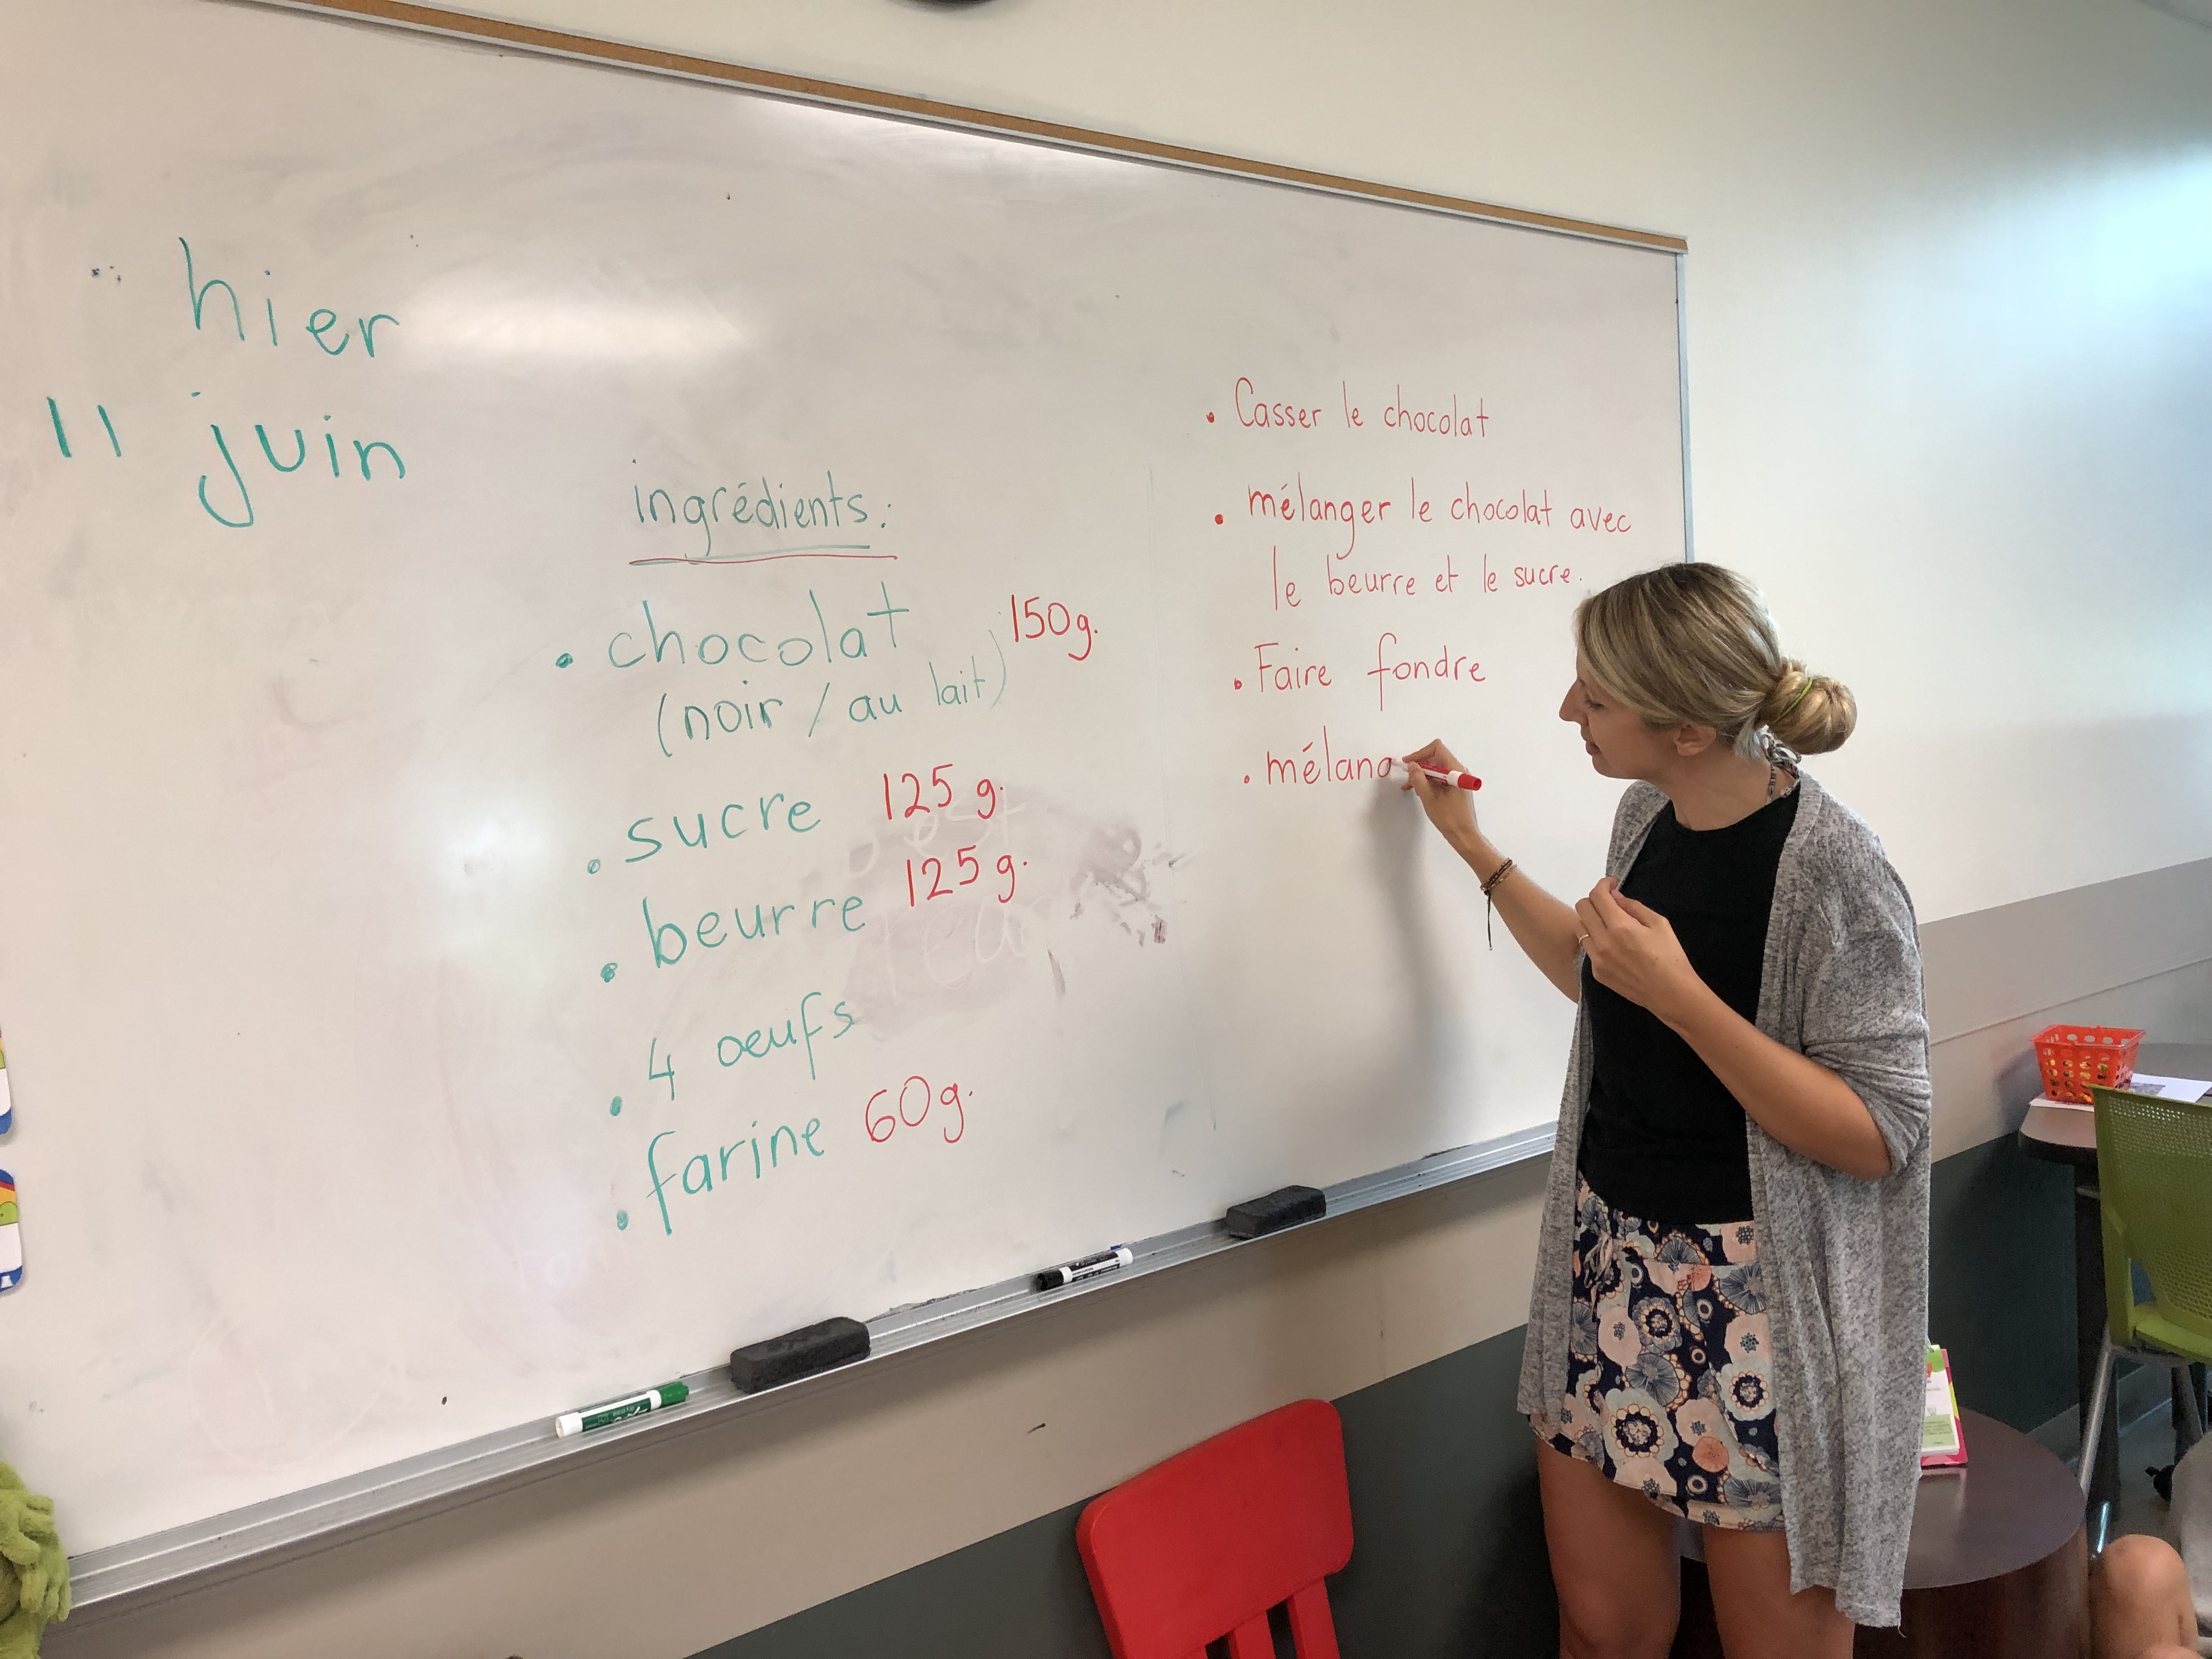 hier
11 juin
ingrédients:
• chocolat 150g.
(noir / au lait)
• sucre 125 g.
• beurre 125 g.
• 4 œufs
• farine 60g.
• Casser le chocolat
• mélanger le chocolat avec
le beurre et le sucre.
• Faire fondre
• mélang